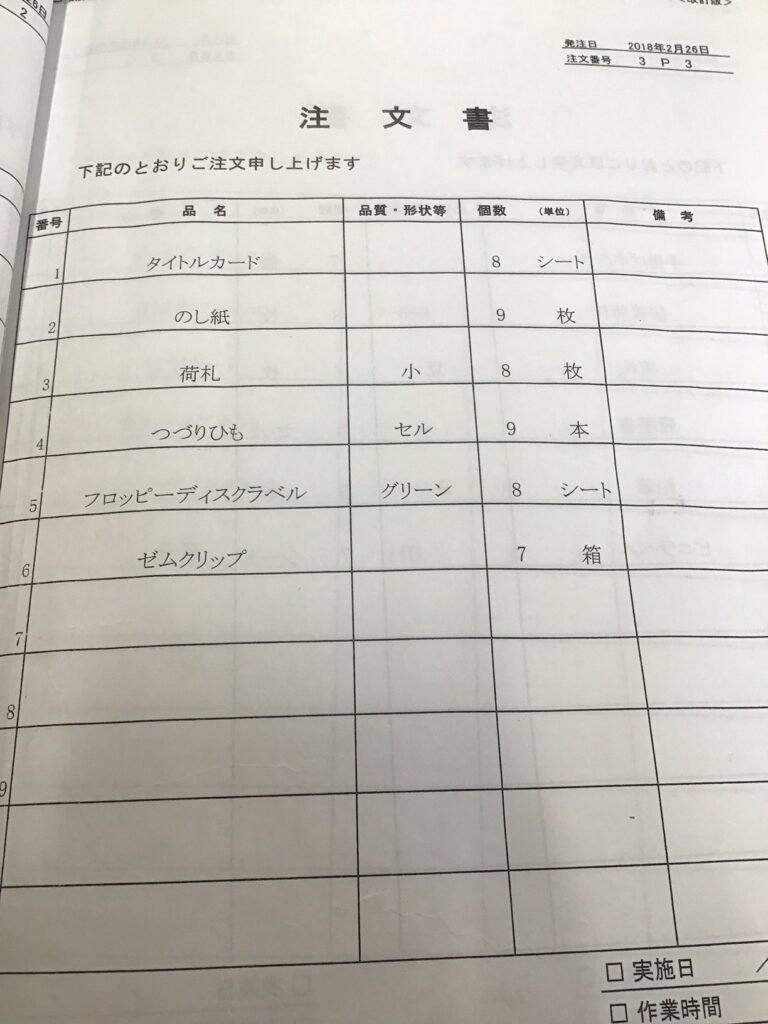 改訂版>
2
発注日 2018年2月26日
注文番号 3 P 3
注 文 書
下記のとおりご注文申し上げます
番号 品 名 品質・形状等 個数 (単位) 備 考
1 タイトルカード 8 シート
2 のし紙 9 枚
3 荷札 小 8 枚
4 つづりひも セル 9 本
5 フロッピーディスクラベル グリーン 8 シート
6 ゼムクリップ 7 箱
7
8
9
□ 実施日 /
□ 作業時間